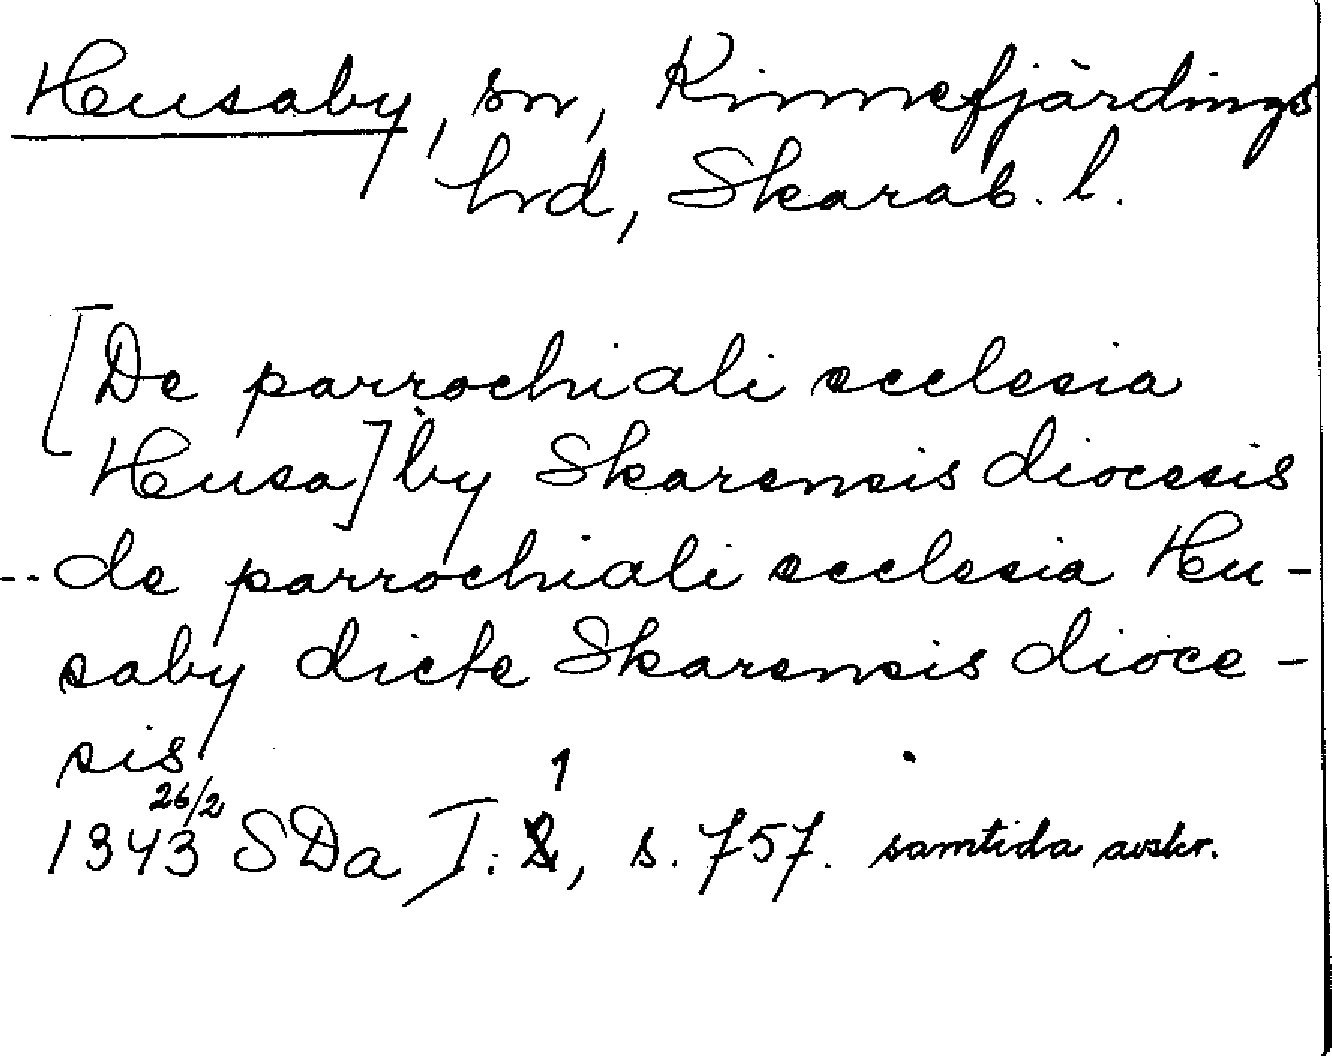 Husaby, sn, Kinnefjärdings
hrd, Skarab. l.
[De parrochiali ecclesia
Husa]by Skarensis diocesis
-- de parrochiali ecclesia Hu-
saby dicte Skarensis dioce-
sis
1343 26/2 SDa I. 1, s. 757. samtida avskr.